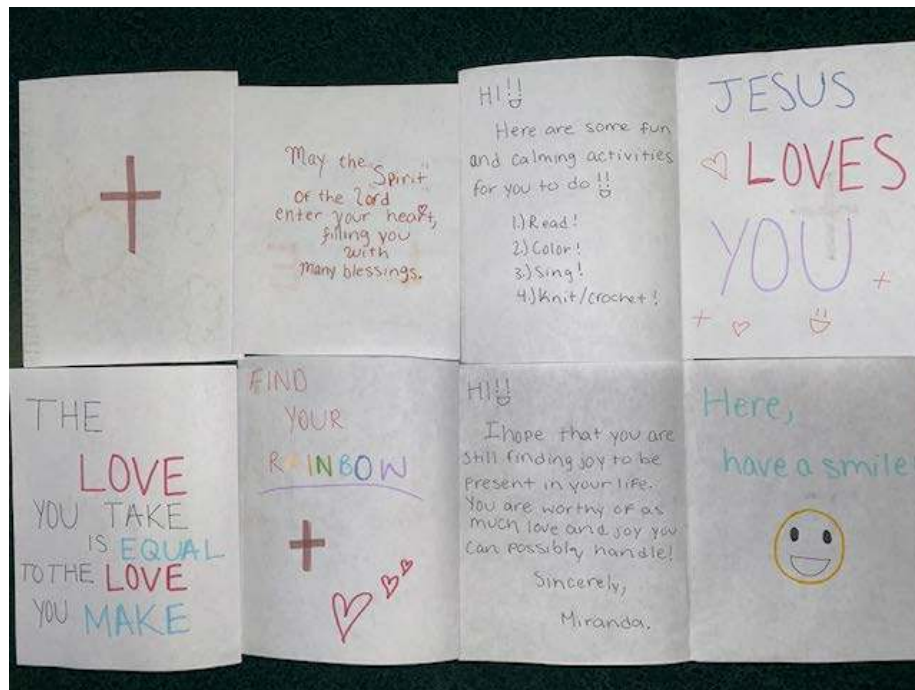 May the
Spirit
of the Lord
enter your heart,
filling you
with
many blessings.
HI!!
Here are some fun
and calming activities
for you to do!!
1.) Read!
2.) Color!
3.) Sing!
4.) Knit/crochet!
JESUS
LOVES
YOU
THE
LOVE
YOU TAKE
IS EQUAL
TO THE LOVE
YOU MAKE
FIND
YOUR
RAINBOW
HI!!
I hope that you are
still finding joy to be
present in your life.
You are worthy of as
much love and joy you
can possibly handle!
Sincerely,
Miranda.
Here,
have a smile